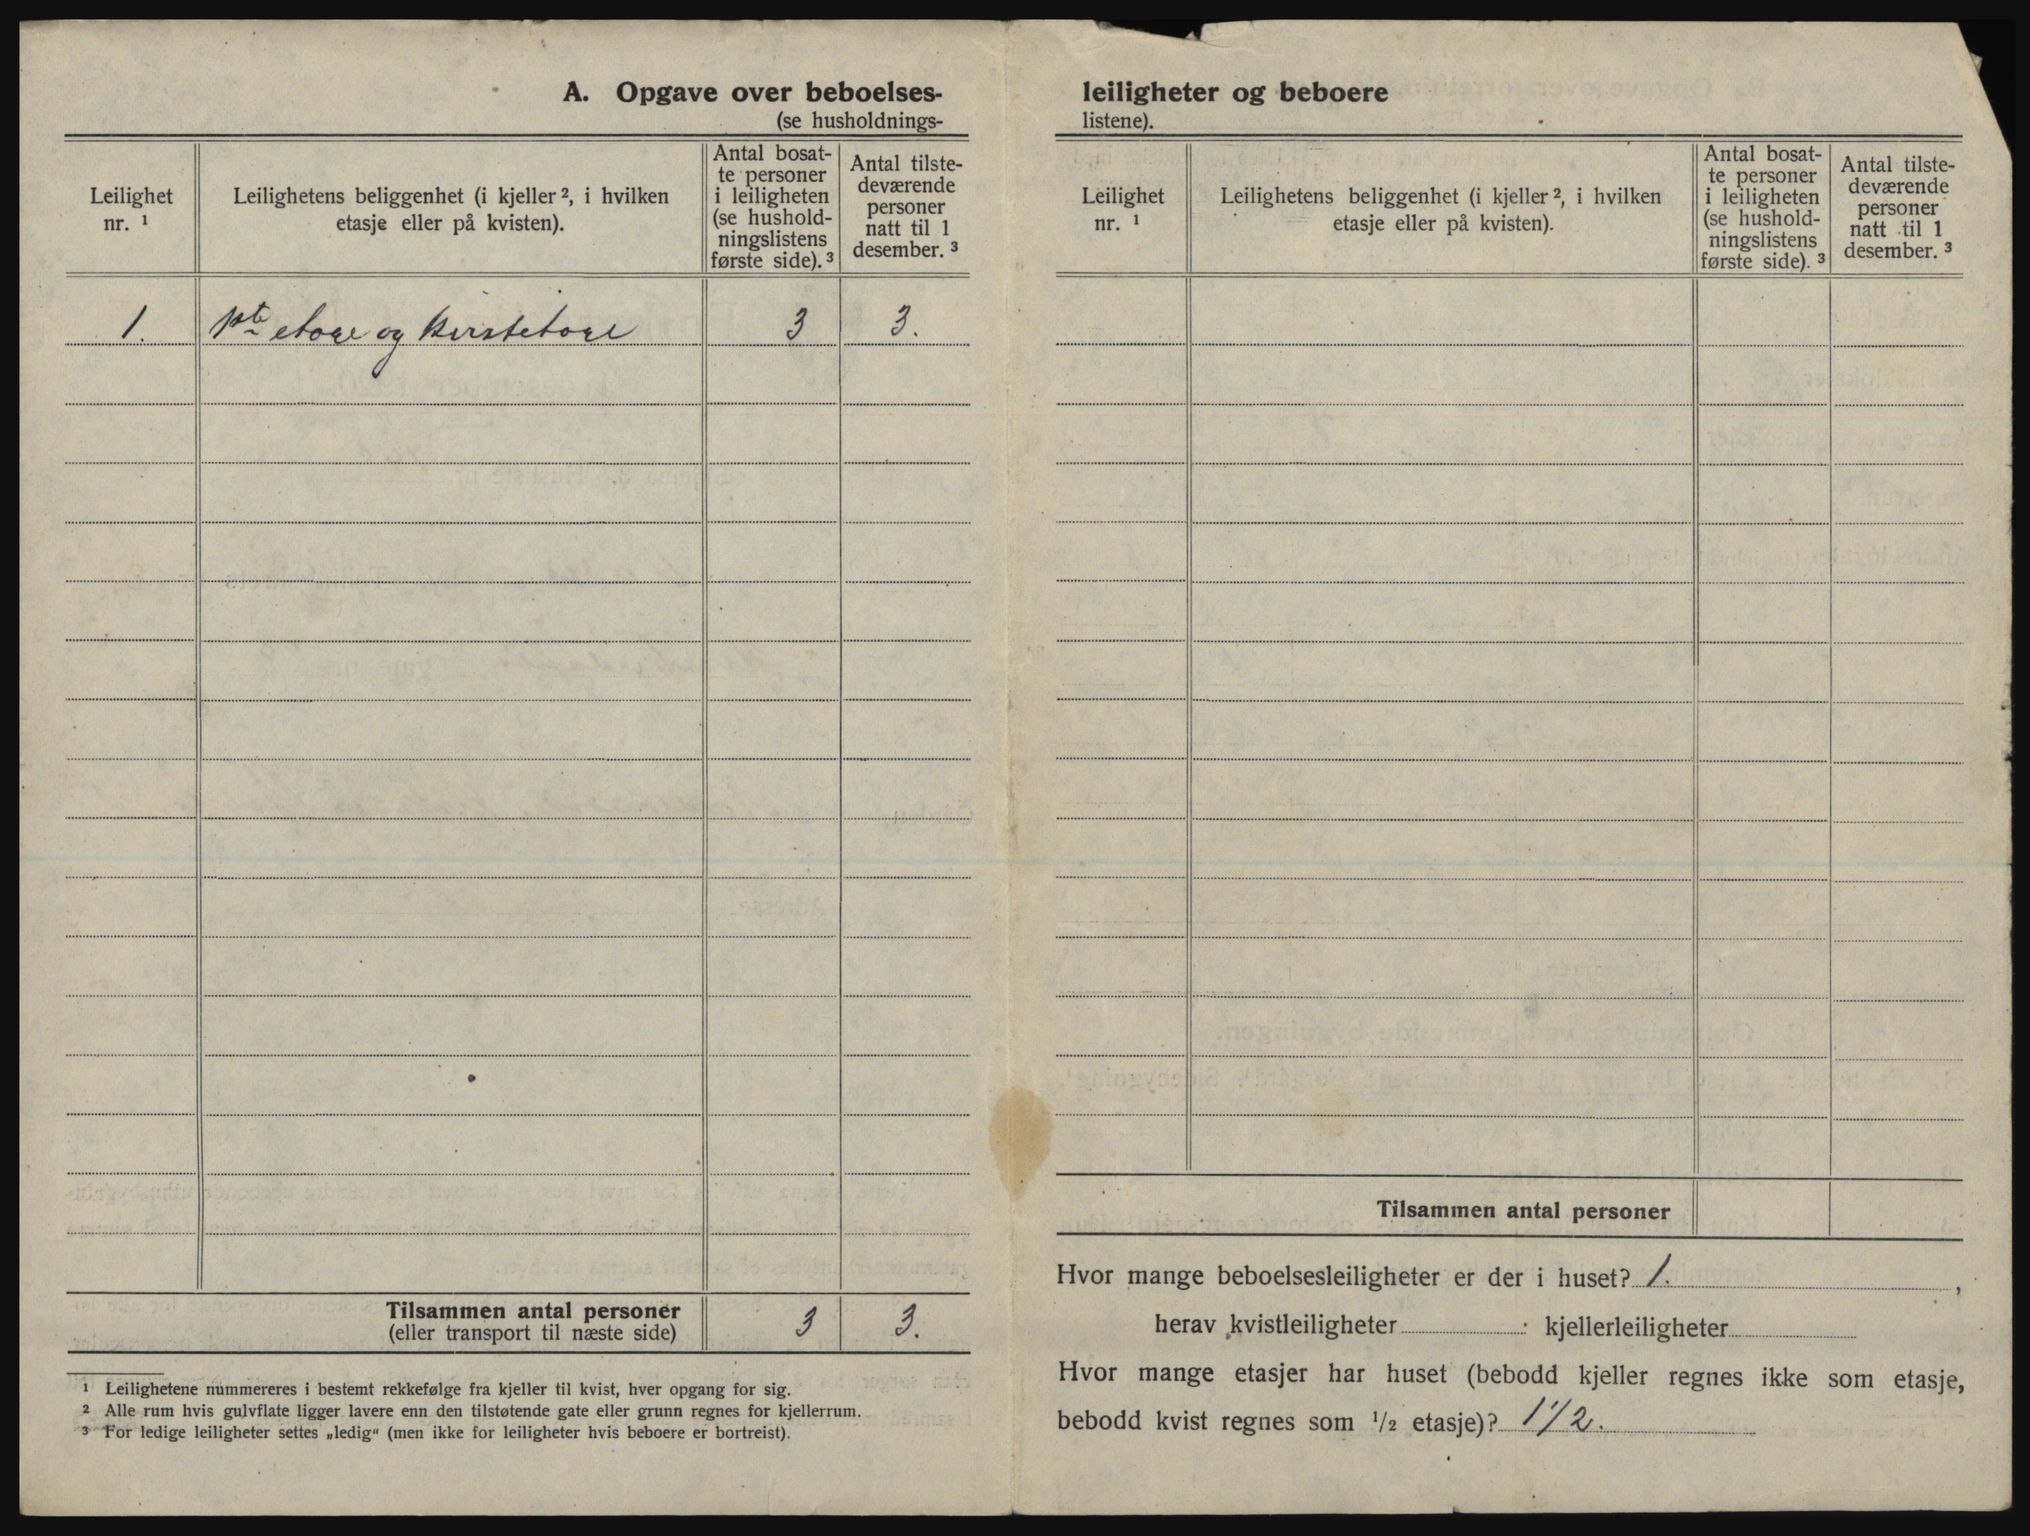 A. Opgave over beboelses-
(se husholdnings-
Leilighet nr. ¹
Leilighetens beliggenhet (i kjeller ², i hvilken
etasje eller på kvisten).
Antal bosat-
te personer
i leiligheten
(se hushold-
ningslistens
første side). ³
Antal tilste-
deværende
personer
natt til 1
desember. ³
1. 1ste etage og kvistetage 3 3.
Tilsammen antal personer 3 3.
(eller transport til næste side)
¹ Leilighetene nummereres i bestemt rekkefølge fra kjeller til kvist, hver opgang for sig.
² Alle rum hvis gulvflate ligger lavere enn den tilstøtende gate eller grunn regnes for kjellerrum.
³ For ledige leiligheter settes „ledig“ (men ikke for leiligheter hvis beboere er bortreist).
leiligheter og beboere
listene).
Leilighet nr. ¹
Leilighetens beliggenhet (i kjeller ², i hvilken
etasje eller på kvisten).
Antal bosat-
te personer
i leiligheten
(se hushold-
ningslistens
første side). ³
Antal tilste-
deværende
personer
natt til 1
desember. ³
Tilsammen antal personer
Hvor mange beboelsesleiligheter er der i huset? 1. ,
herav kvistleiligheter kjellerleiligheter
Hvor mange etasjer har huset (bebodd kjeller regnes ikke som etasje,
bebodd kvist regnes som ½ etasje)? 1 1/2.